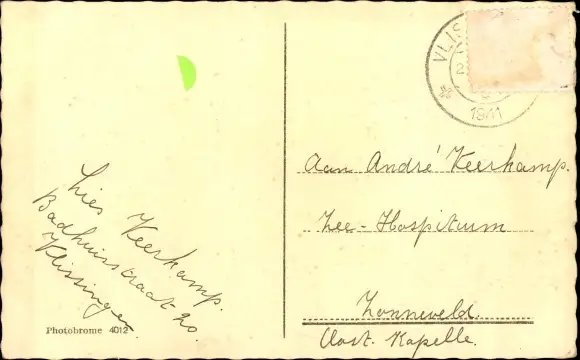 VLIS
1941
Lies Keerkamp.
Badhuisstraat 20
Vlissingen.
Photobrome 4012
Aan André Keerkamp.
Zee-Hospitium
Zonneveld.
Oost. Kapelle.